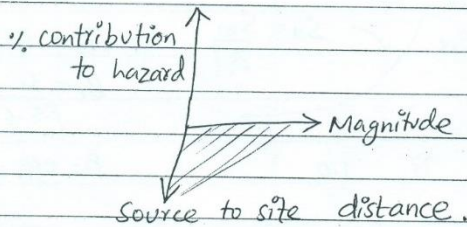 % contribution
to hazard
Magnitude
Source to site distance.